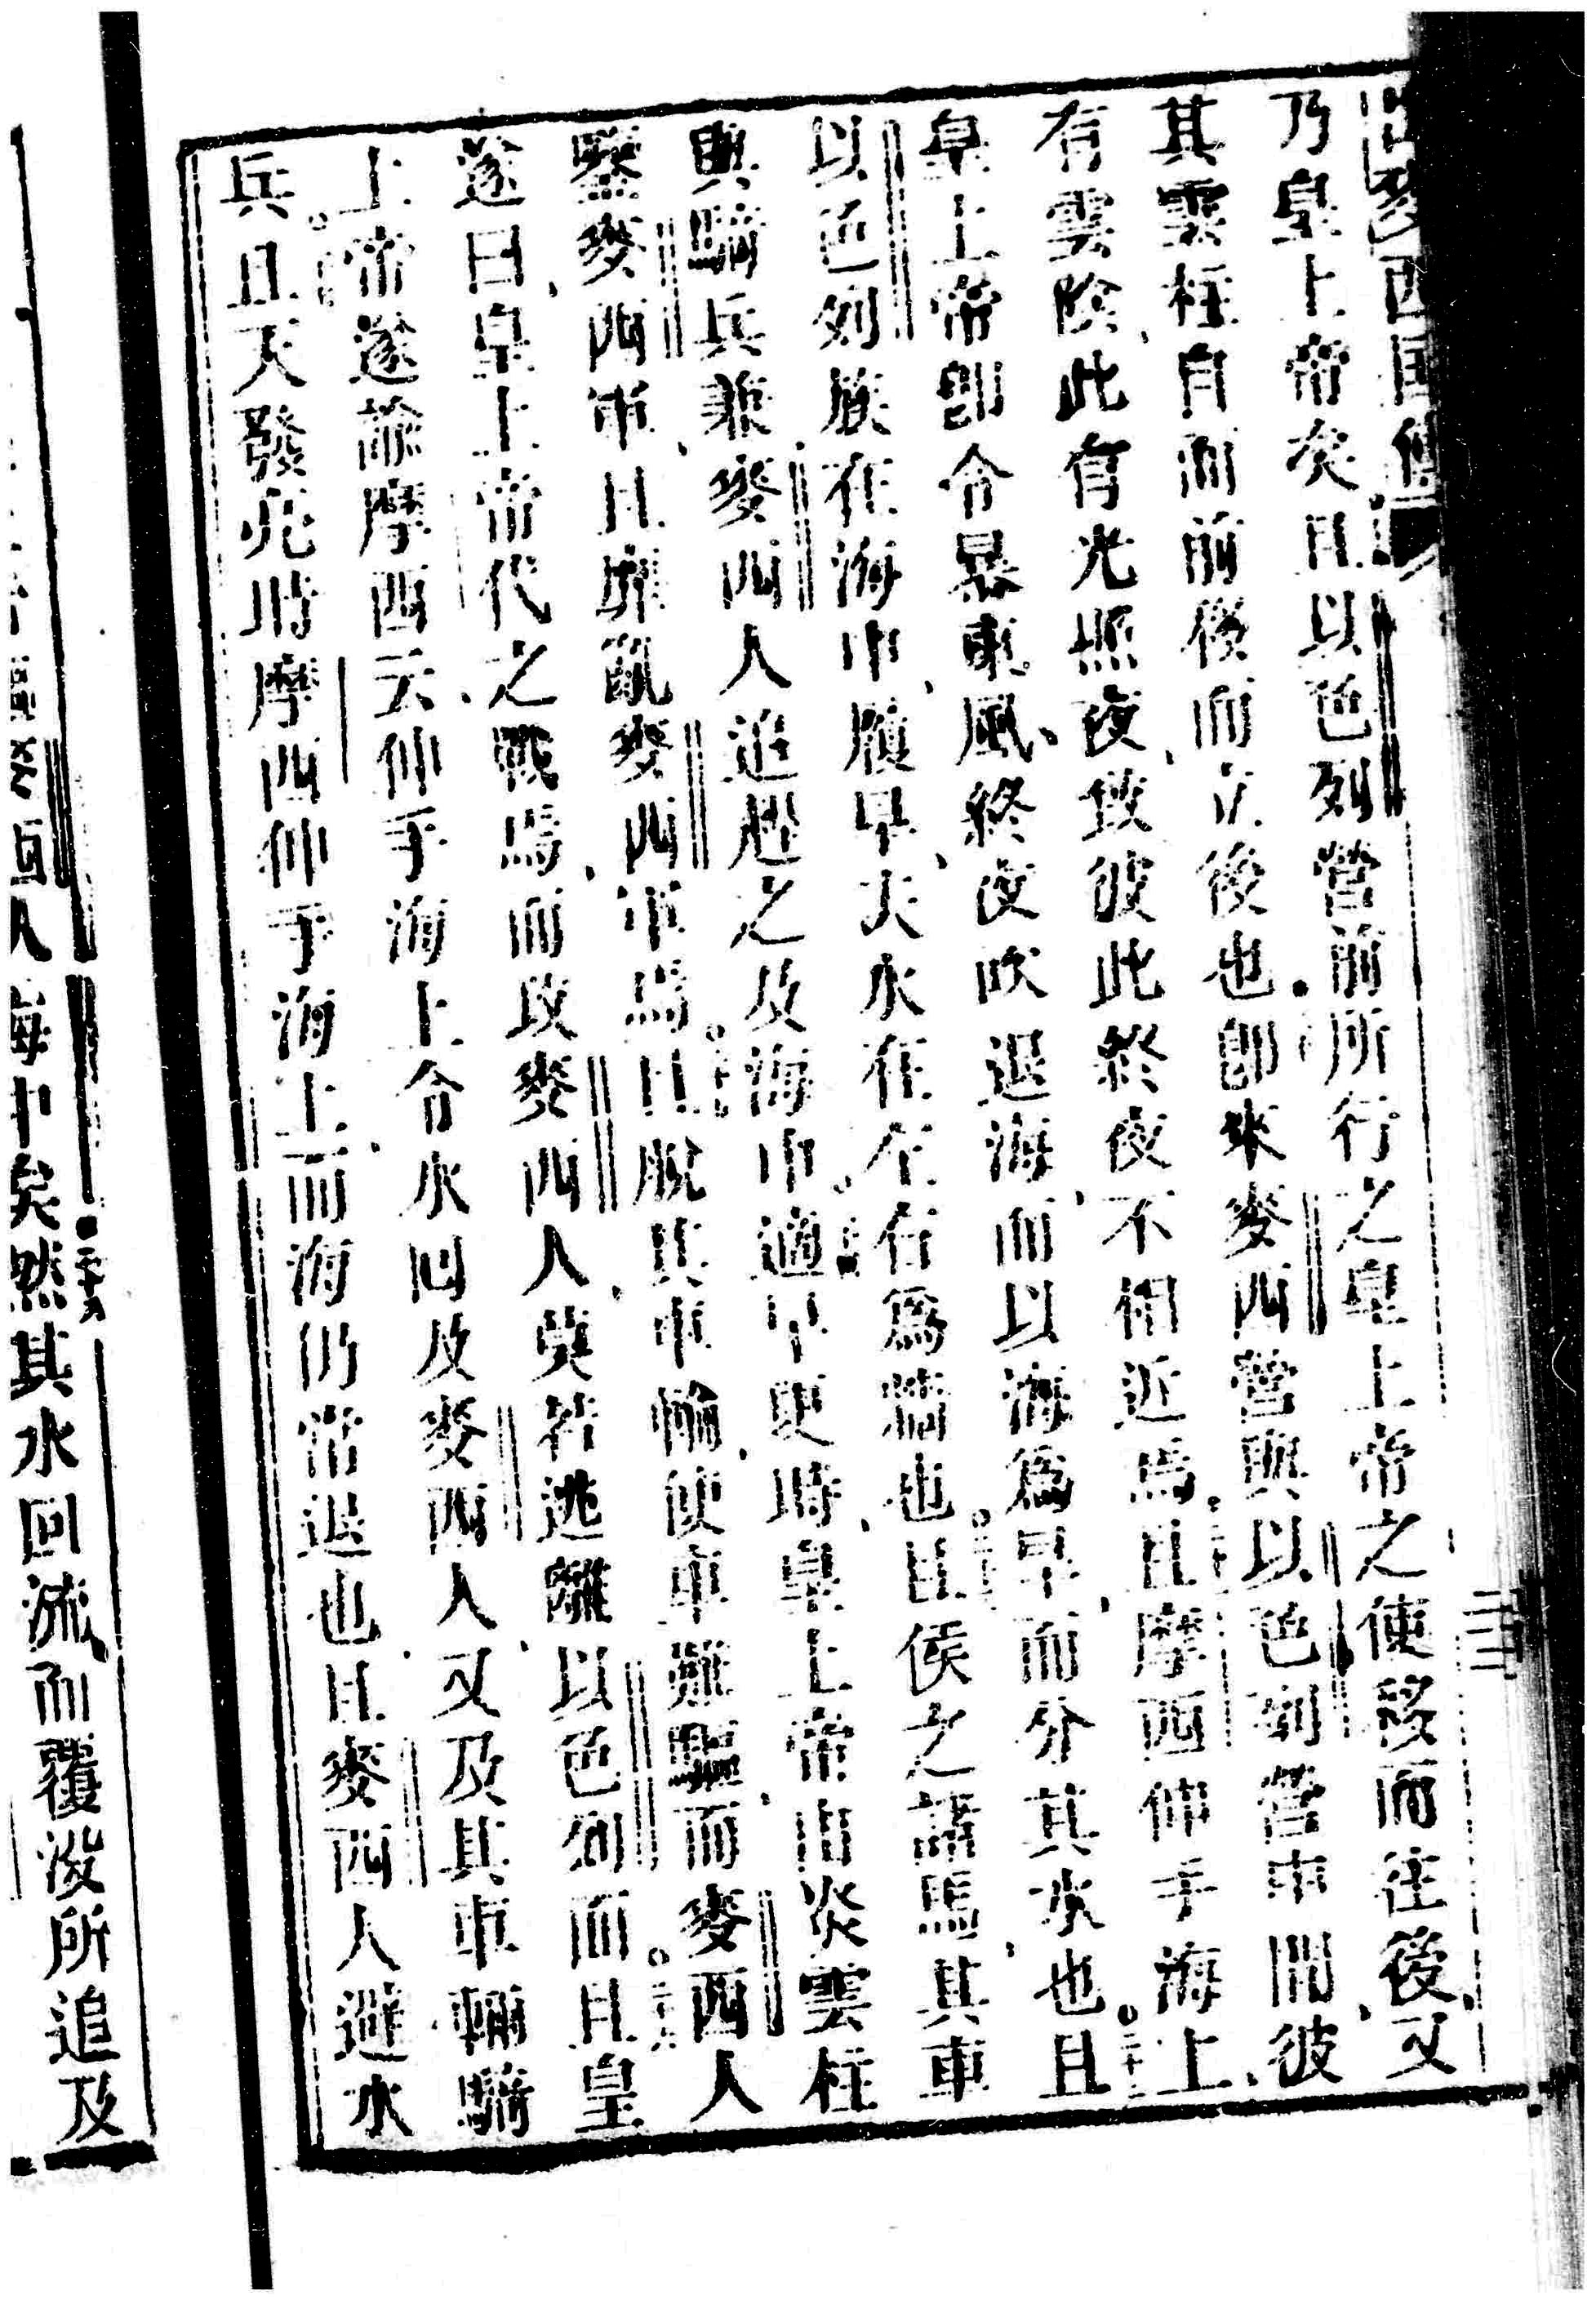 出麥西國傳
乃皇上帝矣且以色列營前所行之皇上帝之使移而往後又
其雲柱自而前後而立後也即來麥西營與以色列營中間彼
有雲陰此有光照夜致彼此終夜不相近焉二十一且摩西伸手海上
皇上帝即令暴東風終夜吹退海而以海為旱而分其水也二十二且
以色列族在海中履旱大水在左右為墻也二十三且侯之諸馬其車
與騎兵兼麥西人追趕之及海中二十四適早更時皇上帝由炎雲柱
鑒麥西軍且擾亂麥西軍焉二十五且脫其車輪使車難驅而麥西人
遂曰皇上帝代之戰焉而攻麥西人莫若逃離以色列而二十六且皇
上帝遂諭摩西云伸手海上令水回及麥西人又及其車輛騎
兵二十七且天發亮時摩西伸手海上而海仍常退也且麥西人避水
海中矣二十八然其水回流而覆沒所追及